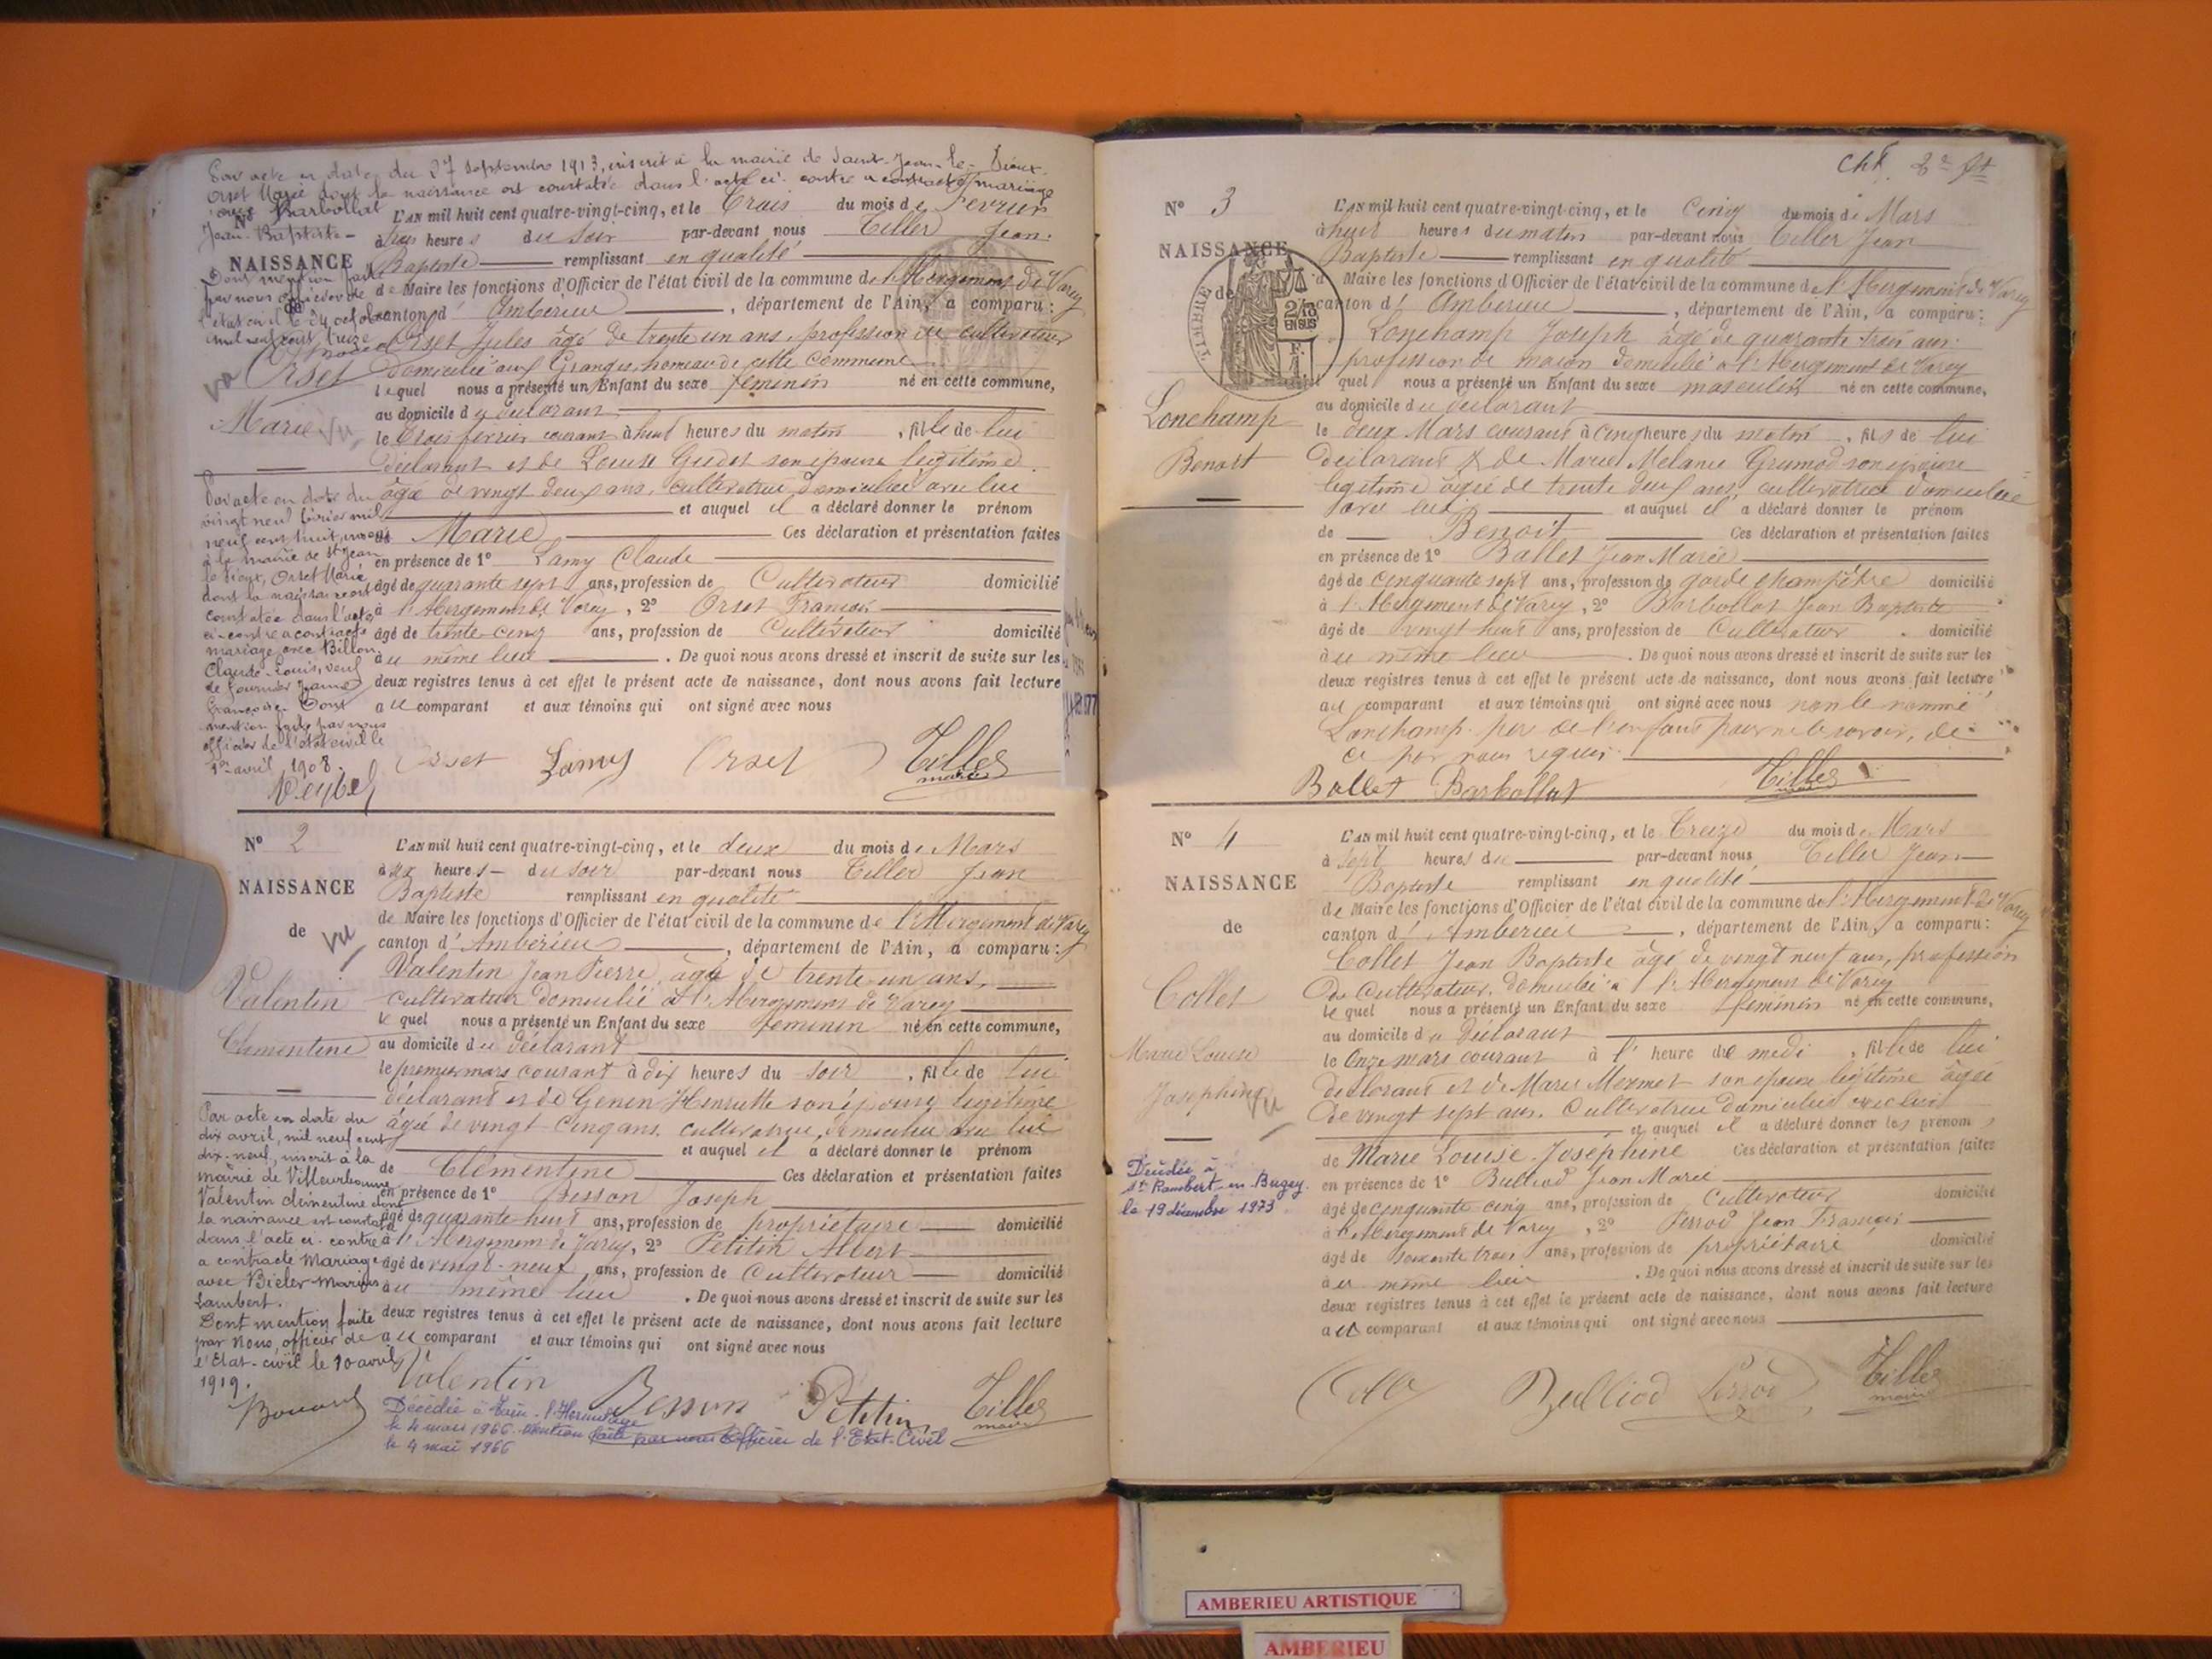 Par acte en date du 27 septembre 1913, inscrit à la mairie de Saint-Jean-le-Vieux
Orset Marie dont la naissance est constatée dans l'acte ci-contre a contracté mariage
avec Barbollat
Jean-Baptiste
NAISSANCE
de
Dont mention faite
par nous officier de
l'état civil le 24 octobre
mil neuf cent treize
Orset
Marie
Vu
Par acte en date du
vingt neuf février mil
neuf cent huit, inscrit
à la mairie de St Jean
le Vieux, Orset Marie
dont la naissance est
constatée dans l'acte
ci-contre a contracté
mariage avec Billon
Claude-Louis, veuf
de Fournier Jeanne
Françoise. Dont
mention faite par nous
officier de l'état civil le
1er avril 1908.
L'AN mil huit cent quatre-vingt-cinq, et le Trois du mois de Fevrier
à trois heures du soir par-devant nous Tiller Jean
Baptiste remplissant en qualité
de Maire les fonctions d'Officier de l'état civil de la commune de l'Abergement de Varey
canton d'Ambérieu, département de l'Ain, a comparu:
Orset Jules âgé de trente un ans, profession de cultivateur
domicilié aux Granges, hameau de cette commune
lequel nous a présenté un Enfant du sexe feminin né en cette commune,
au domicile du déclarant
le trois février courant à huit heures du matin, fille de lui
déclarant et de Louise Gudet son épouse légitime
âgée de vingt deux ans, cultivatrice, domiciliée avec lui
et auquel il a déclaré donner le prénom
de Marie Ces déclaration et présentation faites
en présence de 1° Lamy Claude
âgé de quarante sept ans, profession de Cultivateur domicilié
à l'Abergement de Varey, 2° Orset François
âgé de trente-cinq ans, profession de Cultivateur domicilié
au même lieu. De quoi nous avons dressé et inscrit de suite sur les
deux registres tenus à cet effet le présent acte de naissance, dont nous avons fait lecture
au comparant et aux témoins qui ont signé avec nous
Orset Lamy Orset Tiller
maire
N° 2
NAISSANCE
de
Vu
Valentin
Clementine
Par acte en date du
dix avril, mil neuf cent
dix-neuf, inscrit à la
mairie de Villeurbanne
Valentin Clémentine dont
la naissance est constatée
dans l'acte ci-contre
a contracté Mariage
avec Bieler Marius
Lambert.
Dont mention faite
par Nous, officier de
l'Etat-civil le 10 avril
1919.
L'AN mil huit cent quatre-vingt-cinq, et le deux du mois de Mars
à six heures du soir par-devant nous Tiller Jean
Baptiste remplissant en qualité
de Maire les fonctions d'Officier de l'état civil de la commune de l'Abergement de Varey
canton d'Ambérieu, département de l'Ain, a comparu:
Valentin Jean Pierre, âgé de trente un ans,
cultivateur domicilié à l'Abergement de Varey
lequel nous a présenté un Enfant du sexe feminin né en cette commune,
au domicile du déclarant
le premier mars courant à dix heures du soir, fille de lui
déclarant et de Genin Henriette son épouse légitime
âgée de vingt-cinq ans, cultivatrice, domiciliée avec lui
et auquel il a déclaré donner le prénom
de Clémentine Ces déclaration et présentation faites
en présence de 1° Besson Joseph
âgé de quarante-huit ans, profession de propriétaire domicilié
à l'Abergement de Varey, 2° Petitin Albert
âgé de vingt-neuf ans, profession de Cultivateur domicilié
au même lieu. De quoi nous avons dressé et inscrit de suite sur les
deux registres tenus à cet effet le présent acte de naissance, dont nous avons fait lecture
au comparant et aux témoins qui ont signé avec nous
Valentin Besson Petitin Tiller
maire
Décédée à Tain-l'Hermitage
le 4 mai 1966. Mention faite par nous Officier de l'Etat-Civil
le 4 mai 1966
N° 3
NAISSANCE
de
TIMBRE
EN SUS
Lonchamp
Benoit
L'AN mil huit cent quatre-vingt-cinq, et le Cinq du mois de Mars
à huit heures du matin par-devant nous Tiller Jean
Baptiste remplissant en qualité
de Maire les fonctions d'Officier de l'état civil de la commune de l'Abergement de Varey
canton d'Amberieu, département de l'Ain, a comparu:
Lonchamp Joseph âgé de quarante trois ans
profession de maçon domicilié à l'Abergement de Varey
quel nous a présenté un Enfant du sexe masculin né en cette commune,
au domicile du déclarant
le deux Mars courant à cinq heures du matin, fils de lui
déclarant & de Marie Melanie Grumod son épouse
légitime âgée de trente deux ans, cultivatrice domiciliée
avec lui et auquel il a déclaré donner le prénom
de Benoit Ces déclaration et présentation faites
en présence de 1° Ballet Jean Marie
âgé de cinquante sept ans, profession de garde champêtre domicilié
à l'Abergement de Varey, 2° Barbollat Jean Baptiste
âgé de vingt huit ans, profession de Cultivateur domicilié
au même lieu. De quoi nous avons dressé et inscrit de suite sur les
deux registres tenus à cet effet le présent acte de naissance, dont nous avons fait lecture
au comparant et aux témoins qui ont signé avec nous non le nommé
Lonchamp père de l'enfant pour ne le savoir, de
ce par nous requis.
Ballet Barbollat Tiller
N° 4
NAISSANCE
de
Collet
Marie Louise
Josephine
Vu
Décédée à
St Rambert-en-Bugey
le 19 décembre 1973
L'AN mil huit cent quatre-vingt-cinq, et le Treize du mois de Mars
à sept heures du par-devant nous Tiller Jean
Baptiste remplissant en qualité
de Maire les fonctions d'Officier de l'état civil de la commune de l'Abergement de Varey
canton d'Amberieu, département de l'Ain, a comparu:
Collet Jean Baptiste âgé de vingt neuf ans, profession
de Cultivateur, domicilié à l'Abergement de Varey
lequel nous a présenté un Enfant du sexe feminin né en cette commune,
au domicile du déclarant
le Onze mars courant à l'heure de midi, fille de lui
déclarant et de Marie Mermet son épouse légitime âgée
de vingt sept ans, Cultivatrice domiciliée avec lui
et auquel il a déclaré donner les prénoms
de Marie Louise Josephine Ces déclaration et présentation faites
en présence de 1° Bulliod Jean Marie
âgé de cinquante cinq ans, profession de Cultivateur domicilié
à l'Abergement de Varey, 2° Perrod Jean François
âgé de soixante trois ans, profession de propriétaire domicilié
au même lieu. De quoi nous avons dressé et inscrit de suite sur les
deux registres tenus à cet effet le présent acte de naissance, dont nous avons fait lecture
au comparant et aux témoins qui ont signé avec nous
Bulliod Perrod Tiller
maire
AMBERIEU ARTISTIQUE
AMBERIEU